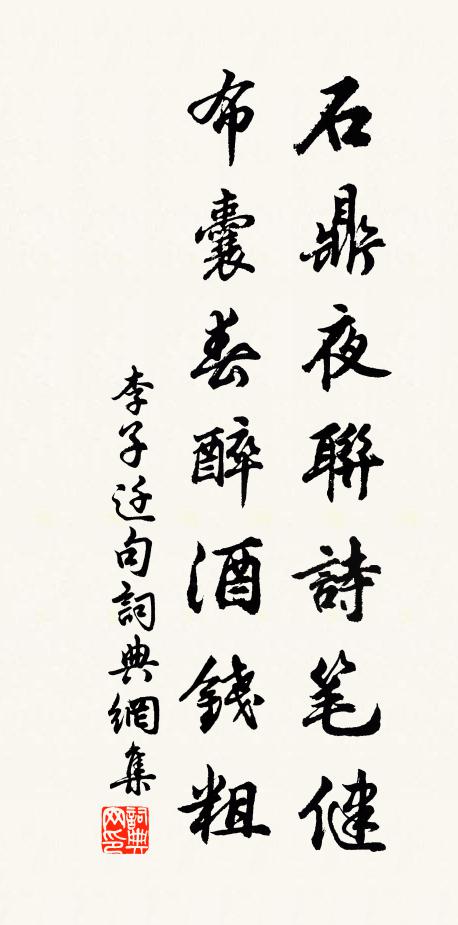 石鼎夜聯詩笔健
布囊春醉酒錢粗
李子迁句詞典網集
詞典网印